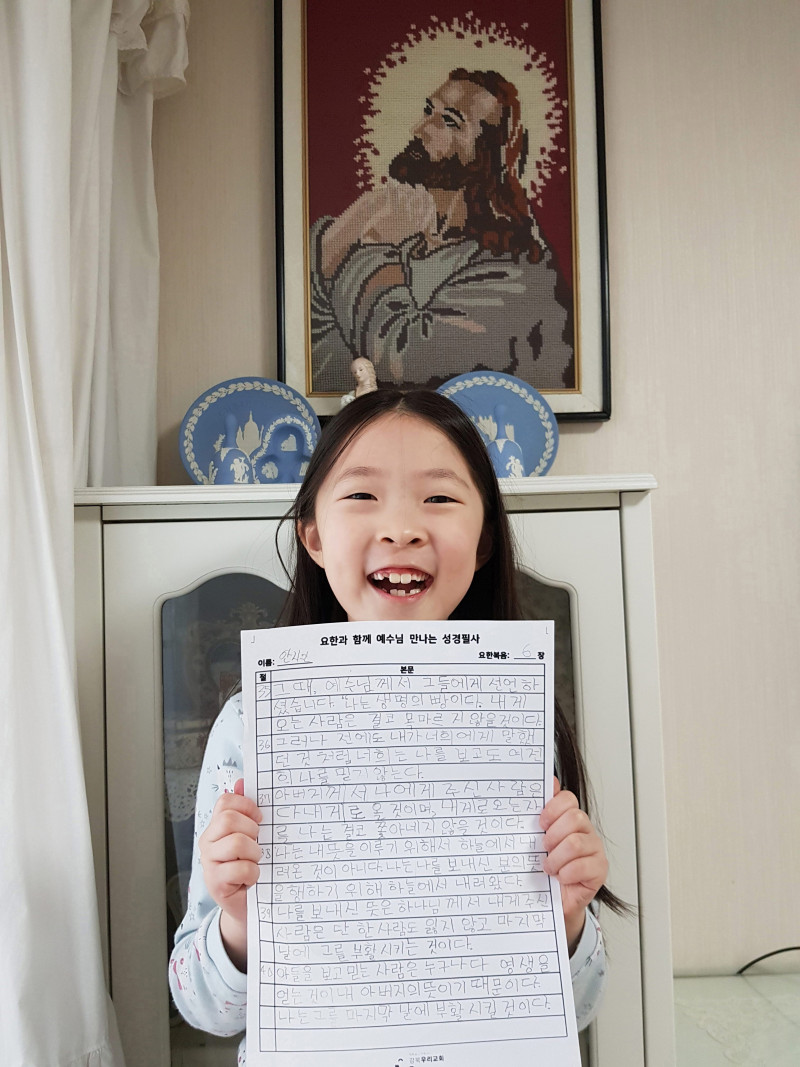 요한과 함께 예수님 만나는 성경필사
이름: 안지민 요한복음: 6 장
절 본문
35 그 때, 예수님께서 그들에게 선언하
셨습니다. "나는 생명의 빵이다. 내게
오는 사람은 결코 목마르지 않을 것이다.
36 그러나 전에도 내가 너희에게 말했
던 것처럼 너희는 나를 보고도 여전
히 나를 믿기 않는다.
37 아버지께서 나에게 주신 사람은
다 내게로 올 것이며, 내게로 오는 자
를 나는 결코 쫓아내지 않을 것이다.
38 나는 내 뜻을 이루기 위해서 하늘에서 내
려온 것이 아니다. 나는 나를 보내신 분의 뜻
을 행하기 위해 하늘에서 내려왔다.
39 나를 보내신 뜻은 하나님께서 내게 주신
사람은 단 한 사람도 잃지 않고 마지막
날에 그를 부활시키는 것이다.
40 아들을 보고 믿는 사람은 누구나 다 영생을
얻는 것이 내 아버지의 뜻이기 때문이다.
나는 그를 마지막 날에 부활시킬 것이다.
강북우리교회